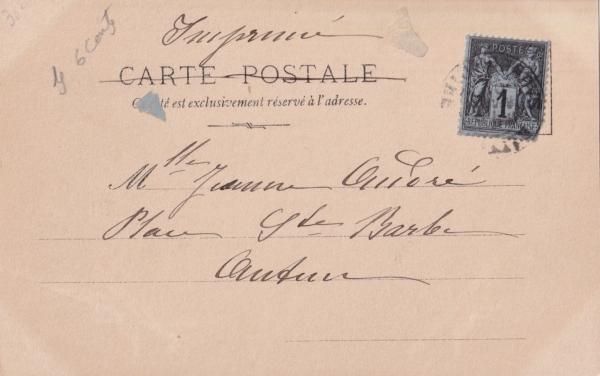 6 Cents
Imprimé
CARTE POSTALE
Ce côté est exclusivement réservé à l'adresse.
POSTES
1
Mlle Jeanne André
Place Ste Barbe
Autun